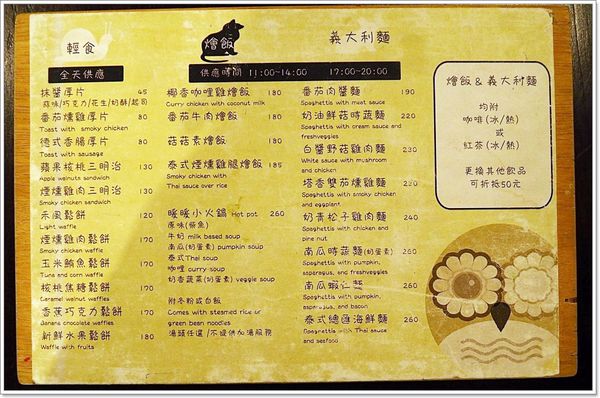 輕食
全天供應
抹醬厚片 45
蒜味/巧克力/花生/奶酥/起司
番茄燻雞厚片 80
Toast with smoky chicken
德式香腸厚片 80
Toast with sausage
蘋果核桃三明治 130
Apple walnuts sandwich
煙燻雞肉三明治 130
Smoky chicken sandwich
禾風鬆餅 110
Light waffle
煙燻雞肉鬆餅 160
Smoky chicken waffle
玉米鮪魚鬆餅 170
Tuna and corn waffle
核桃焦糖鬆餅 160
Caramel walnut waffles
香蕉巧克力鬆餅 170
Banana chocolate waffles
新鮮水果鬆餅 180
Waffle with fruits
燴飯
供應時間 11:00~14:00 17:00~20:00
椰香咖哩雞燴飯 180
Curry chicken with coconut milk
番茄牛肉燴飯 180
菇菇素燴飯 180
泰式煙燻雞腿燴飯 185
Smoky chicken with
Thai sauce over rice
暖暖小火鍋 Hot pot 260
原味(柴魚)
牛奶 milk based soup
南瓜(奶蛋素) pumpkin soup
泰式Thai soup
咖哩 curry soup
奶香蔬菜(奶蛋素) veggie soup
附冬粉或白飯
Comes with steamed rice or
green bean noodles
湯頭任選 / 不提供加湯服務
義大利麵
番茄肉醬麵 190
Spaghettis with meat sauce
奶油鮮菇時蔬麵 220
Spaghettis with cream sauce and
freshveggies
白醬野菇雞肉麵 230
White sauce with mushroom
and chicken
塔香雙茄燻雞麵 230
Spaghettis with smoky chicken
and eggplant
奶青松子雞肉麵 240
Spaghettis with chicken and
pine nut
南瓜時蔬麵(奶蛋素) 240
Spaghettis with pumpkin,
asparagus, and freshveggies
南瓜蝦仁麵 260
Spaghettis with pumpkin,
asparagus, and bacon
泰式總匯海鮮麵 260
Spaghettis with Thai sauce
and seafood
燴飯 & 義大利麵
均附
咖啡(冰/熱)
或
紅茶(冰/熱)
更換其他飲品
可折抵50元